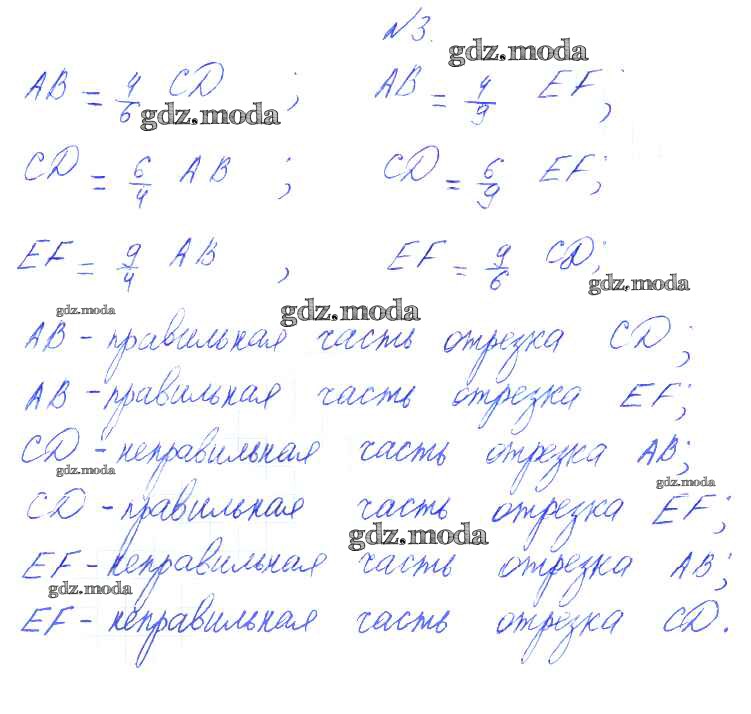 №3.
gdz.moda
AB = 4/6 CD ; AB = 4/9 EF;
gdz.moda
CD = 6/4 AB ; CD = 6/9 EF;
EF = 9/4 AB , EF = 9/6 CD;
gdz.moda
gdz.moda gdz.moda
AB - правильная часть отрезка CD;
AB - правильная часть отрезка EF;
CD - неправильная часть отрезка AB;
gdz.moda gdz.moda
CD - правильная часть отрезка EF;
gdz.moda
EF - неправильная часть отрезка AB;
gdz.moda
EF - неправильная часть отрезка CD.